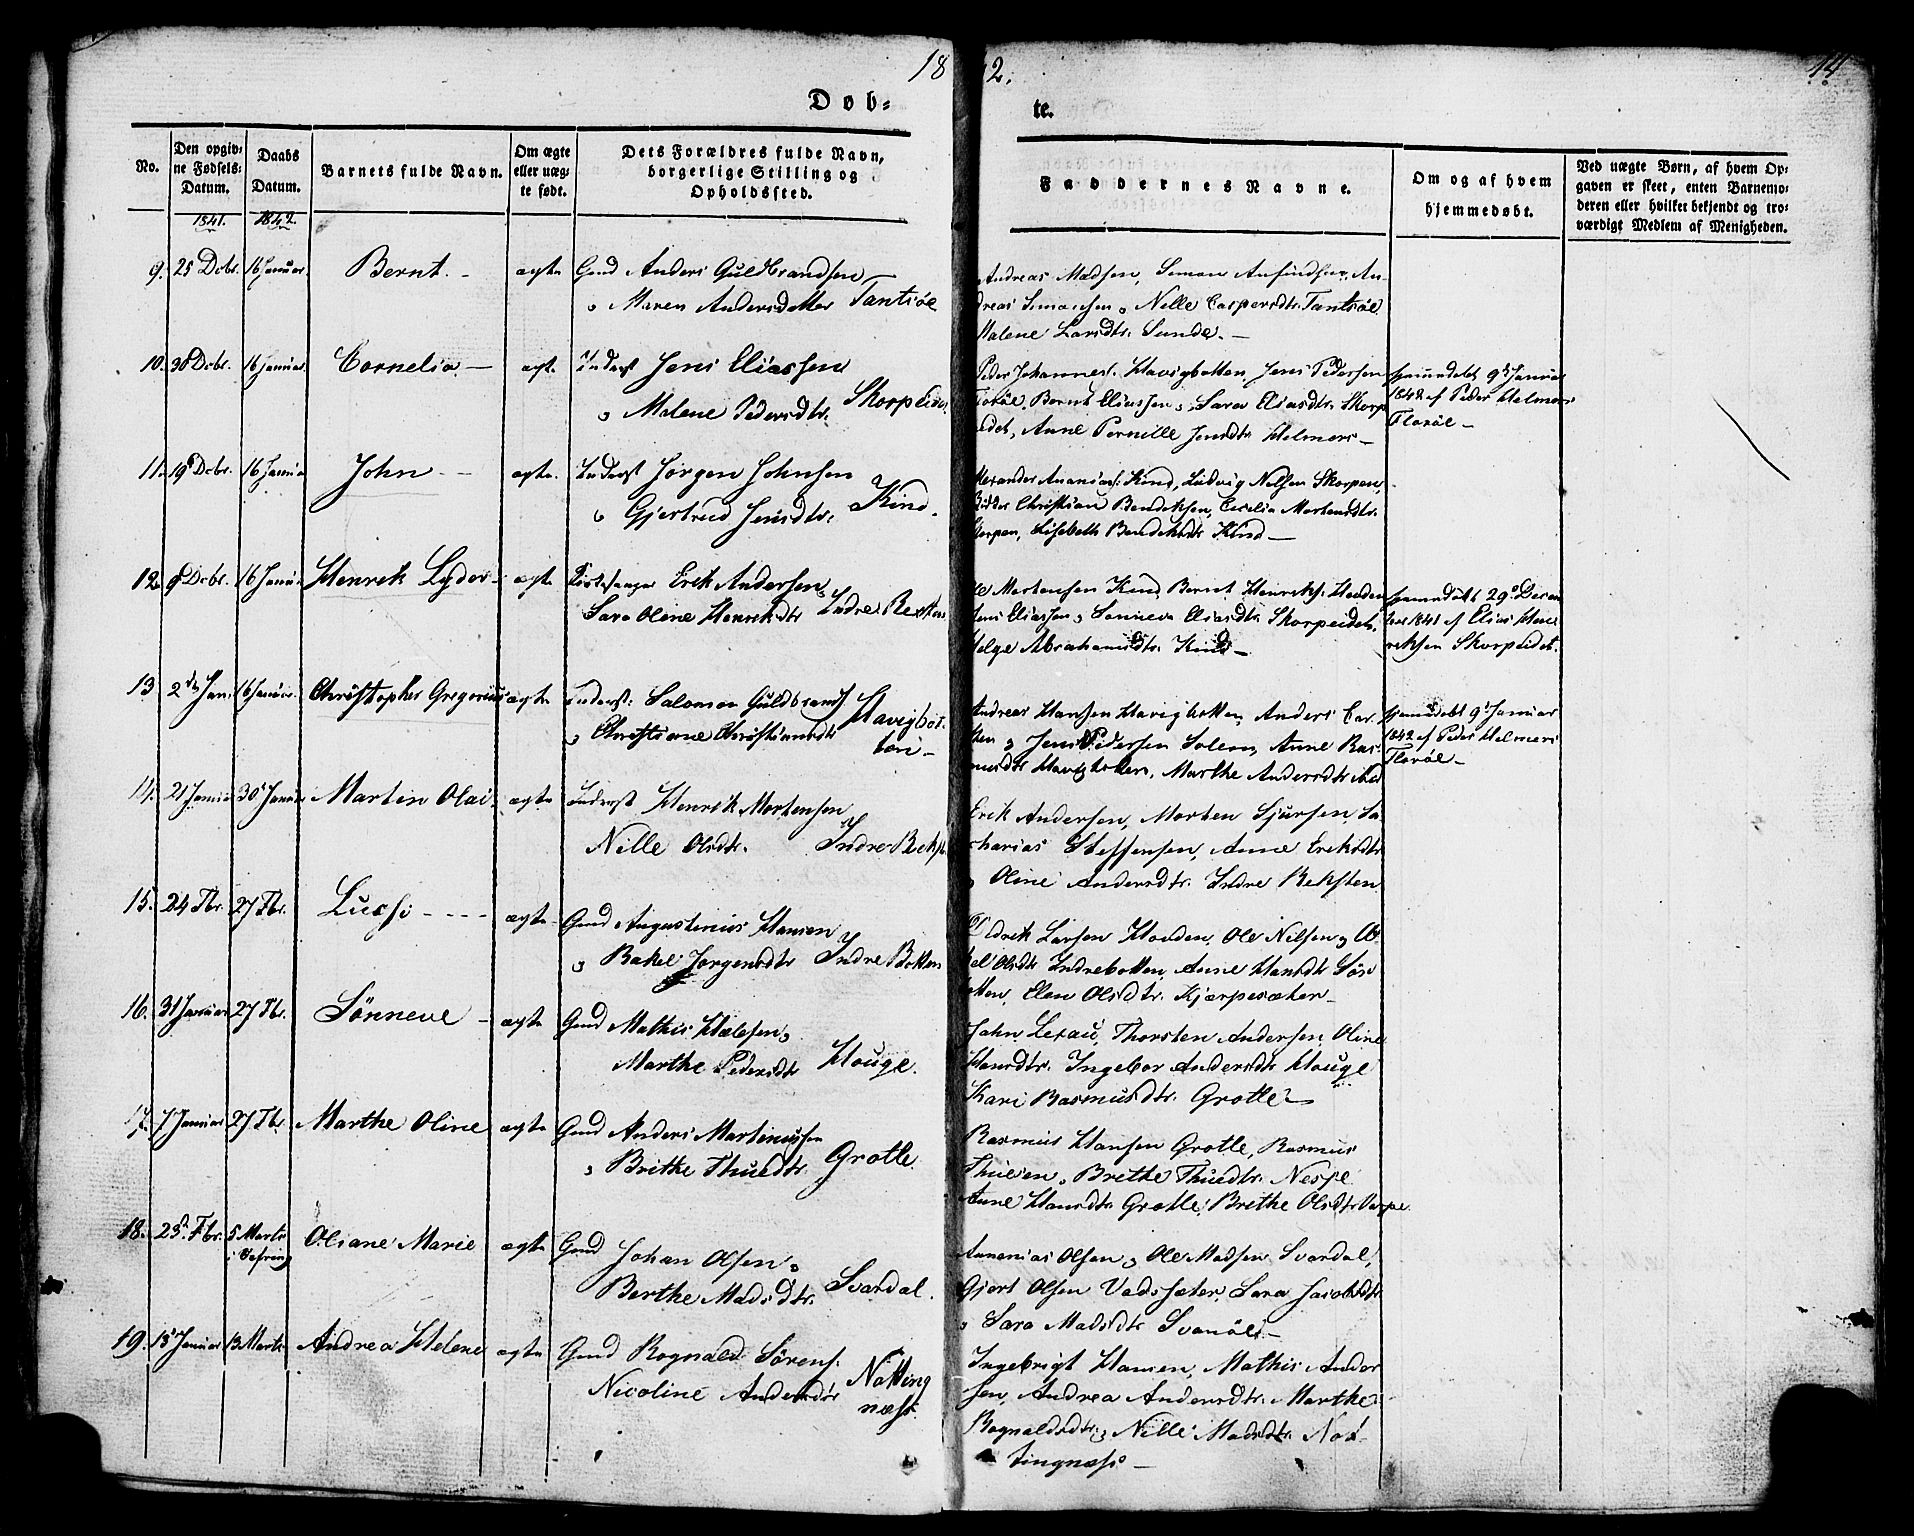 18
2.
14
Døb=
te.
No.
Den opgiv=
ne Fødsels=
Datum.
Daabs
Datum.
Barnets fulde Navn.
Om ægte
eller uæg=
te født.
Dets Forældres fulde Navn,
borgerlige Stilling og
Opholdssted.
Faddernes Navne.
Om og af hvem
hjemmedøbt.
Ved uægte Børn, af hvem Op=
gaven er skeet, enten Barnemo=
deren eller hvilket bekjendt og tro=
værdigt Medlem af Menigheden.
1841. 1842.
9. 25 Dcbr. 16 Januar. Bernt. ægte Gmd Anders Guldbrandsen
Maren Andersdatter Tansøe
Andreas Madsen, Simon Ansindsen, An-
dreas Simonsen og Nille Caspersdtr. Tansøe
Malene Larsdtr. Sunde.
10. 30 Dcbr. 16 Januar. Cornelia ægte Inderst Jens Eliassen
Malene Pedersdtr. Skorpeidet
Peder Johannes. Havigbotten, Jens Pedersen
Florøe, Bernt Eliassen, Sara Eliasdtr. Skorp-
eidet, Anne Pernille Jensdtr. Helmers
hjemmedøbt 9d Januar
1842 af Peder Helmers
Florøe
11. 19 Dcbr. 16 Janua John ægte. Inderst Jørgen Johnsen
Gjertrud Jensdtr. Kind.
Alexander Ananias: Kind, Ludvig Nilsen Skorpen,
Peder Christian Bendiksen, Cecilia Mortensdtr.
Skorpen, Lisebeth Bendiksdtr. Kind
12. 8 Dcbr. 16 Janua Henrik Lyder ægte Kirkesanger Erik Andersen
Sara Oline Henriksdtr Indre Reksten
Ole Mortensen Kind, Bernt Henriks: Houden
Jens Eliassen, Sonneva Eliasdtr. Skorpeidet,
Helge Abrahamsdtr. Kind
hjemmedøbt 29d Decem
ber 1841 af Elias Hen
reksen Skorpeidet.
13 2den Jan. 16 Januar. Christopher Gregorius ægte Inderst: Salomon Guldbrands
Christiane Christiansdtr Havigbot-
ten
Andreas Hansen Havigbotten, Anders Lar-
sen, Jens Pedersen Solem, Anne Ras-
musdtr Havigbotten, Marthe Andersdtr
hjemmedøbt 9d Januar
1842 af Peder Helmers
Florøe
14. 21 Janua 30 Janua Martin Olai. ægte Inderst Henrik Mortensen
Nille Olsdtr. Indre Rekst
Erik Andersen, Morten Sjursen, Sa
charias Steffensen, Anne Eriksdtr
Oline Andersdtr. Indre Reksten
15. 24 Fbr. 27 Fbr. Lussi ægte Gmd Augustinus Hansen
Rakel Jørgensdtr Indre Botten
Eldrik Larsen Houden, Ole Nilsen
Olsdtr Indrebotten, Anne Hansdtr Sør
botten, Elen Olsdtr. Kjærpesæter
16. 31 Januar 27 Fbr. Sønneve ægte Gmd Mathis
Marthe Pedersdtr Houge.
John Lexau, Thorsten Andersen, Oline
Hansdtr. Ingebor Andersdtr Houge
Kari Rasmusdtr. Grotle
17. 7 Januar 27 Fbr. Marthe Oline ægte Gmd Anders Martinussen
Brithe Thuedtr. Grotle
Rasmus Hansen Grotle, Rasmus
Thuesen, Brethe Thuedtr. Nespe
Anne Hansdtr Grotle, Brethe Olsdtr
18. 23d Fbr. 5 Marts Oliane Marie ægte Gmd
i Vefring
Johan Olsen
Berthe Madsdtr. Svardal.
Annanias Olsen, Ole Madsen Svardal,
Gjert Olsen Vadsæter, Lara Jacobsdtr
Sara Madsdtr Svanøe
19. 15 Januar 13 Marts Andrea Helene ægte Gmd Rognald Sørens.
Nicoline Andersdtr Notting
næss
Ingebrigt Hansen, Mathis Ander
sen, Andrea Andersdtr. Marthe
Rognaldsdtr., Nille Madsdtr. Not-
tingnæss